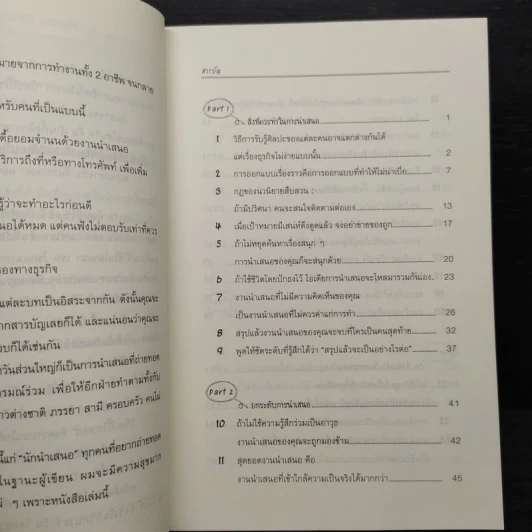 มายจากการทำงานทั้ง 2 อาชีพ จนกลาย
หรับคนที่เป็นแบบนี้
ดื้อยอมจำนนด้วยงานนำเสนอ
ริการถึงที่หรือทางโทรศัพท์ เพื่อเพิ่ม
รู้ว่าจะทำอะไรก่อนดี
นอได้หมด แต่คนฟังไม่ตอบรับเท่าที่ควร
องทางธุรกิจ
แต่ละบทเป็นอิสระจากกัน ดังนั้นคุณจะ
ากสารบัญเลยก็ได้ และแน่นอนว่าคุณจะ
บก็ได้เช่นกัน
วันส่วนใหญ่ก็เป็นการนำเสนอที่ถ่ายทอด
รมณ์ร่วม เพื่อให้อีกฝ่ายทำตามทั้งกับ
าวต่างชาติ ภรรยา สามี ครอบครัว คนไม่
นี้แก่ "นักนำเสนอ" ทุกคนที่อยากถ่ายทอด
ในฐานะผู้เขียน ผมจะมีความสุขมาก
ๆ เพราะหนังสือเล่มนี้
สารบัญ
Part 1
สิ่งที่ควรทำในการนำเสนอ 1
1 วิธีการรับรู้ศิลปะของแต่ละคนอาจแตกต่างกันได้
แต่เรื่องธุรกิจไม่ง่ายแบบนั้น 2
2 การออกแบบเรื่องราวคือการออกแบบที่ทำให้ไม่น่าเบื่อ 7
3 กฎของนวนิยายสืบสวน :
ถ้ามีปริศนา คนจะสนใจติดตามต่อเอง 13
4 เมื่อเป้าหมายมีเสน่ห์ดึงดูดแล้ว จงอย่าขายของถูก 17
5 ถ้าไม่หยุดค้นหาเรื่องสนุก ๆ
การนำเสนอของคุณก็จะสนุกด้วย 20
6 ถ้าใช้ชีวิตโดยปักธงไว้ ไอเดียการนำเสนอจะไหลมารวมกันเอง 23
7 งานนำเสนอที่ไม่มีความคิดเห็นของคุณ
เป็นงานนำเสนอที่ไม่ควรค่าแก่การทำ 26
8 สรุปแล้วงานนำเสนอของคุณจะจบที่ใครเป็นคนสุดท้าย 32
9 พูดให้ชัดระดับที่รู้สึกได้ว่า "สรุปแล้วจะเป็นอย่างไรต่อ" 37
Part 2
ยกระดับการนำเสนอ 41
10 ถ้าไม่ใช้ความรู้สึกร่วมเป็นอาวุธ
งานนำเสนอของคุณจะถูกมองข้าม 42
11 สุดยอดงานนำเสนอ คือ
งานนำเสนอที่เข้าใกล้ความเป็นจริงได้มากกว่า 45